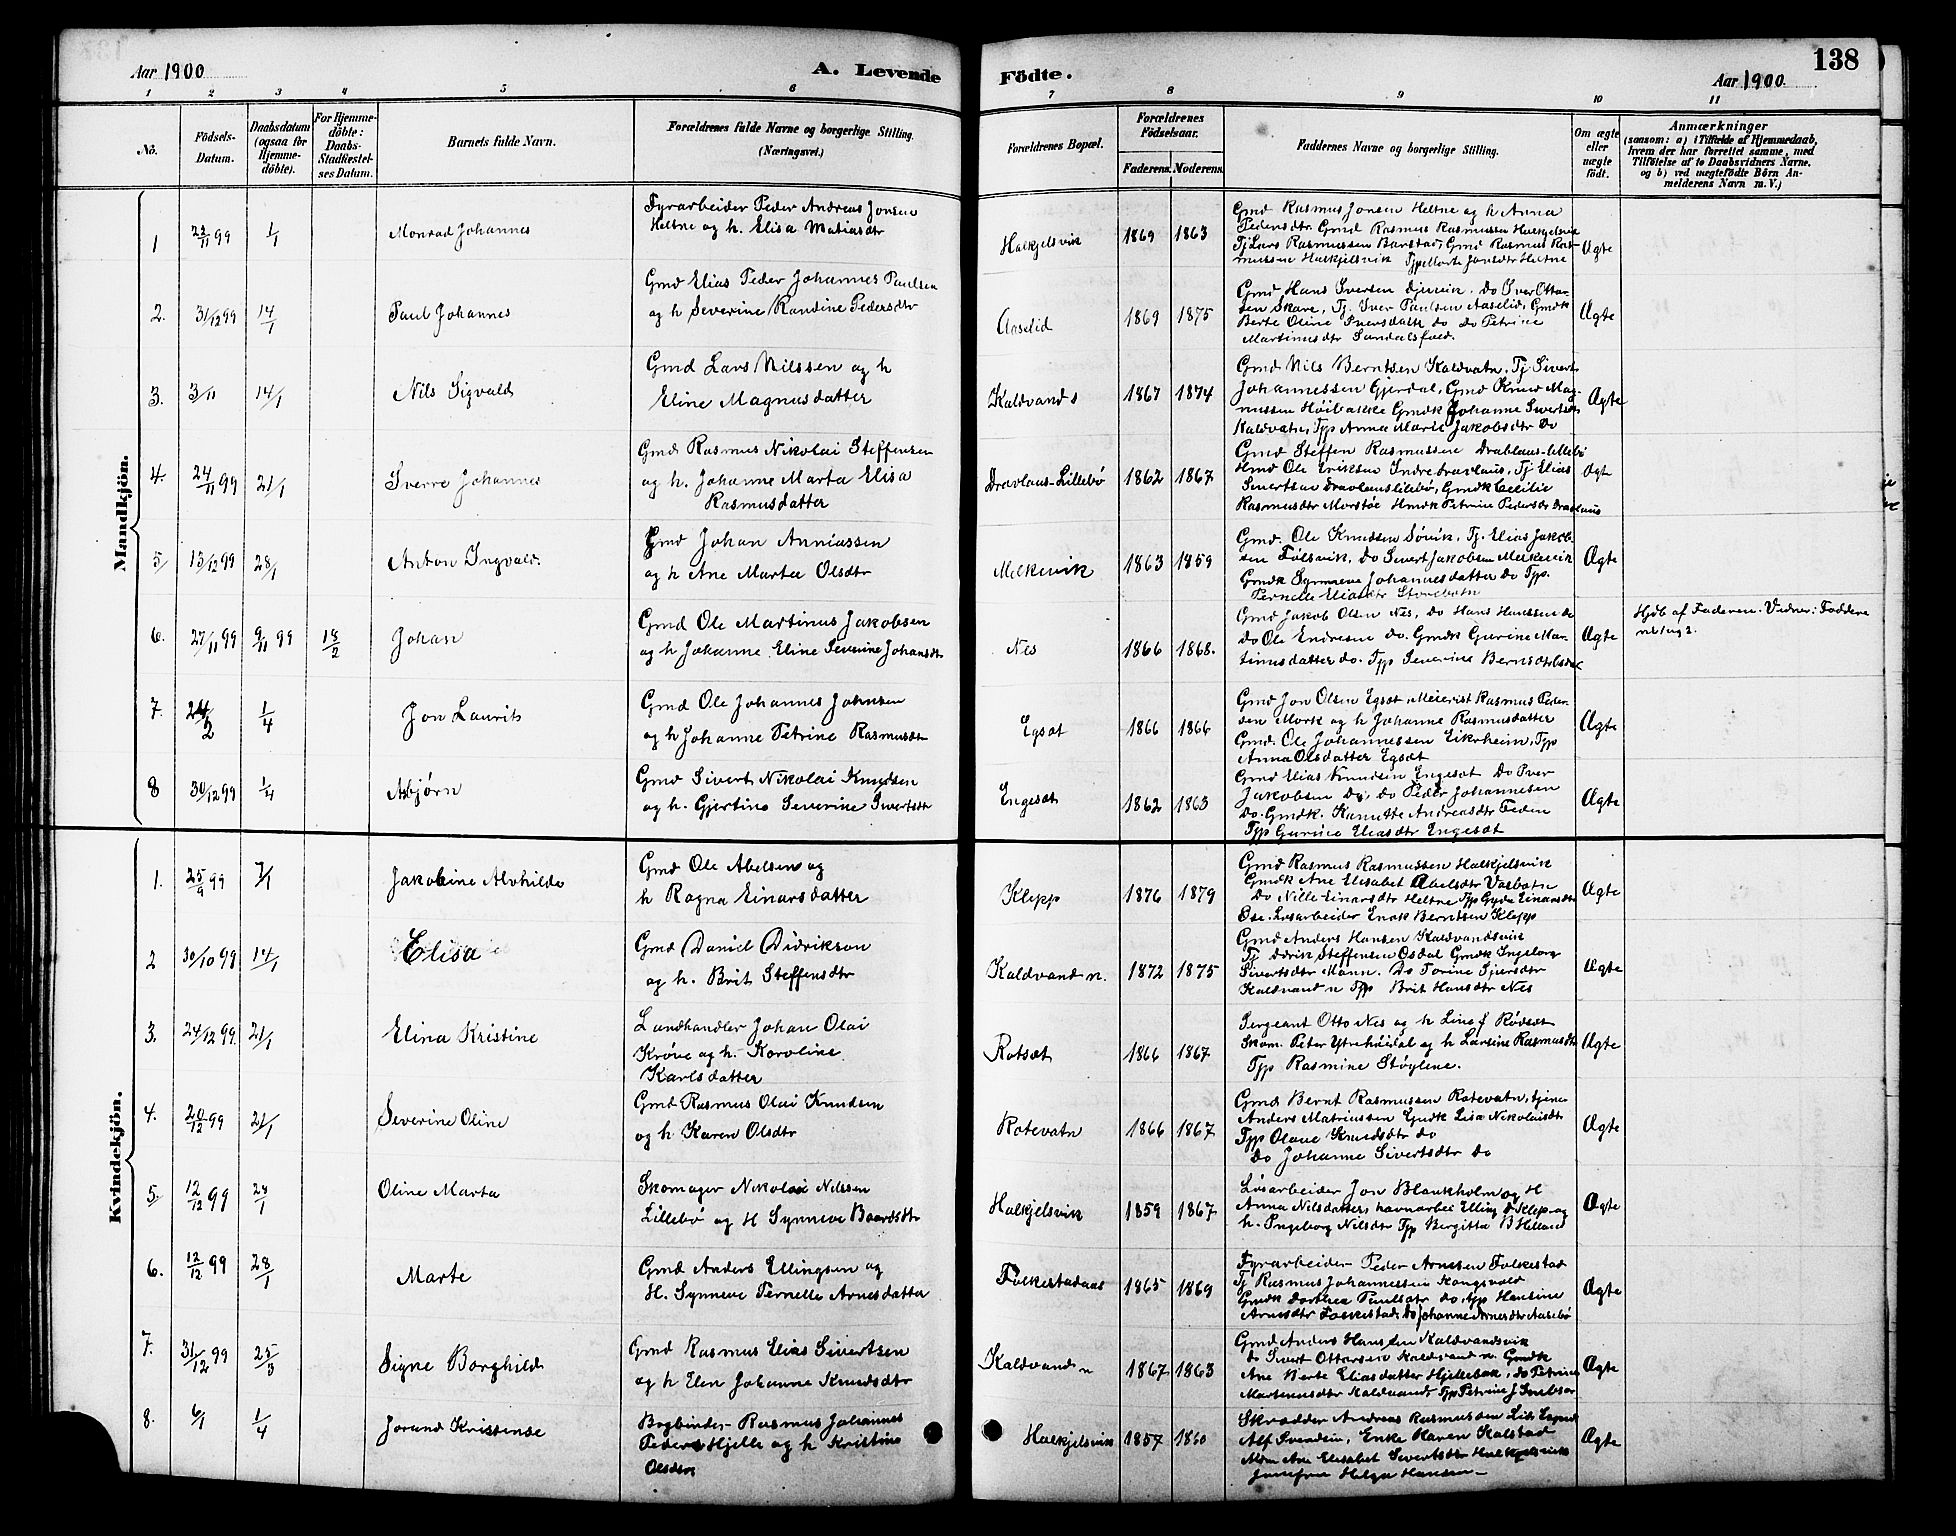 Aar 1900
A. Levende Födte.
138
Aar 1900.
1 2 3 4 5 6 7 8 9 10 11
No.
Födsels-Datum.
Daabsdatum (ogsaa for Hjemmedöbte).
For Hjemmedöbte: Daabs-Stadfæstelses Datum.
Barnets fulde Navn.
Forældrenes fulde Navne og borgerlige Stilling.
(Næringsvei.)
Forældrenes Bopæl.
Forældrenes Födselsaar.
Faderens. Moderens.
Faddernes Navne og borgerlige Stilling.
Om ægte eller uægte födt.
Anmærkninger
(saasom: a) i Tilfælde af Hjemmedaab, hvem der har forrettet samme, med Tilföielse af to Daabsvidners Navne, og b) ved uægtefödte Börn Anmelderens Navn m. V.)
Mandkjön.
1 23/11 99 1/1 Monrad Johannes
Fyrarbeider Peder Andreas Jonsen
Heltne og h. Elisa Matiasdtr
Halkjelsvik 1869 1863
Gmd Rasmus Jonsen Heltne og h Anna
Pedersdtr. Gmd Rasmus Rasmussen Halkjelsvik
Tj Lars Rasmussen Barstad, Gmd Rasmus Ras-
mussen Halkjelsvik Tjp Marte Jonsdtr Heltne
Ægte
2. 31/12 99 14/1 Paul Johannes
Gmd Elias Peder Johannes Paulsen
og h Severine Randine Pedersdtr
Aaselid 1869 1875
Gmd Hans Iversen Djuvik. Do Iver Otta-
sen Skare, Tj. Iver Paulsen Aaselid, Gmdk
Berte Oline Iversdatt do Do Petrine
Martinusdtr Sundalsfoed.
Ægte
3. 3/11 14/1 Nils Sigvald
Gmd Lars Nilssen og h
Eline Magnusdatter
Kaldvand s 1867 1874
Gmd Nils Berntsen Kaldvatn, Tj Sivert
Johannessen Gjerdal, Gmd Knud Mag-
nussen Høibakke Gmdk Johanne Sivertsdt
Kaldvatn, Tjp Anna Marte Jakobsdtr Do
Ægte
4. 24/11 99 21/1 Sverre Johannes
Gmd Rasmus Nikolai Steffensen
og h. Johanne Marta Elisa
Rasmusdatter
Dravlaus-Lillebø 1862 1867
Gmd Steffen Rasmussen Drablaus-lillebø
Hmd Ole Eriksen Indredravlaus, Tj Elias
Sivertsen Dravlauslilebø, Gmdk Cecilie
Rasmusdtr Morstøl Hmdk Petrine Pedersdr Dravlaus
Ægt
5/ 13/12 99 28/1 Anton Ingvald.
Gmd Johan Anniassen
og h Ane Marta Olsdtr
Melkevik 1863 1859
Gmd. Ole Knudsen Søvik, Tj. Elias Jakob-
sen Følsvik, Do Sivert Jakobsen Melkevik
Gmdk Synneve Johannesdatter Do Tjp.
Pernelle Eliasdtr Storebotn
Ægte
6. 27/11 99 9/11 99 18/2 Johan
Gmd Ole Martinus Jakobsen
og h Johanne Eline Severine Johansdt
Nes 1866 1868.
Gmd Jakob Olsen Nes, Do Hans Hanssen do
do Ole Endresen do. Gmdk Gurine Mar-
tinusdatter do. Tjp Severine Berndt
Ægte
Hjdb af Faderen. Vidner: Faddere
no 1 og 2.
7. 24/2 1/4 Jon Laurits
Gmd Ole Johannes Johnsen
og h Johanne Petrine Rasmusdtr
Egsæt 1866 1866
Gmd Jon Olsen Egsæt Meierist Rasmus Peder-
sen Mork og h Johanne Rasmusdatter
Gmd. Ole Johannessen Eikrheim, Tjp
Anna Olsdatter Egsæt
Ægte
8 30/12 99 1/4 Asbjørn
Gmd Sivert Nikolai Knudsen
og h. Gjertine Severine Sivertsdtr
Engeset 1862 1863
Gmd Elias Knudsen Engesæt Do Iver
Jakobsen Do, do Peder Johannesen
Do. Gmdk. Kanutte Andreasdtr Feden
Tjp Gurine Eliasdtr Engesæt
Ægte
Kvindekjön.
1. 25/9 99 7/1 Jakobine Alvhilde
Gmd Ole Abelsen og
h Ragna Einarsdatter
Klepp 1876 1879
Gmd Rasmus Rasmussen Halkjelsvik
Gmdk Ane Elisabet Abelsdtr Vasbotn
Do Nille Einarsdtr Heltne Tjp Gyda Einarsdtr
Øse. Løsarbeider Enok Berntsen Klepp
Ægte
2 30/10 99 14/1 Elisa
Gmd Daniel Didrikson
og h. Brit Steffensdtr
Kaldvand n. 1872 1875
Gmd Anders Hansen Kaldvandsvik
Tj Didrik Steffensen Osdal Gmdk Ingeborg
Sivertsdtr Mann. Do Torine Sjursdtr
Kaldvand n Tjp Brit Hansdtr Nes
Ægte
3. 24/12 99. 21/1 Elina Kristine
Landhandler Johan Olai
Krøve og h. Karoline
Karlsdatter
Rotset 1866 1867
Sergeant Otto Nes og h Line f Rødsæt
Skom. Peter Ytrehøidal og h Larsine Rasmusdtr
Tjp Rasmine Støylene.
Ægte
4. 20/12 99 21/1 Severine Oline
Gmd Rasmus Olai Knudsen
og h Karen Olsdtr
Rotevatn 1866 1867
Gmd Bernt Rasmussen Rotevatn, tjene
Anders Matriussen Gmdk Lisa Nikolaisdtr
Tjp Olave Knudsdtr do
Do Johanne Sivertsdtr Do
Ægte
5. 12/12 99 28/1 Oline Marta
Skomager Nikolai Nilssen
Lillebø og H Synneve Baardsdtr
Halkjelsvik 1859 1867
Løsarbeider Jon Blankholm og H
Anna Nilsdatter, havnarbei Elling Klep og
h. Ingeborg Nilsdtr Tjp Bergitta B Helland
Ægte
6. 12/12 99 28/1 Marte
Gmd Anders Ellingsen og
H. Synneve Pernelle Arnesdatter
Folkestadaas 1865 1869
Fyrarbeider Peder Arnesen Folkestad
Tj Rasmus Johannessen Kongsvold
Gmdk Dorthea Paulsdtr do, tjp Hansine
Arnesdtr Folkestad, Do Johanne Arnesdtr Aasebø
Ægte
7. 31/12 99 25/3 Signe Borghild
Gmd Rasmus Elias Sivertsen
og h Elen Johanne Knudsdtr
Kaldvand n 1867 1863
Gmd Anders Hanssen Kaldvandsvik
do Sivert Ottarsen Kaldvand n. Gmdk
Ane Berte Eliasdatter Hjellebak, do Petrine
Martinusdtr Kaldvand Tjp Petrine J
Ægte
8. 6/1 1/4 Jorund Kristense
Bogbinder Rasmus Johannes
Peders Hjelle og h Kristine
Olsdtr
Halkjelsvik 1857 1860
Skrædder Andreas Rasmussen Lid
Alf Svendsen, Enke Karen Kalstad
Ane Elisabet Sivertsdtr Halkjelsvik
Jomfru Helga Hansen
Ægte